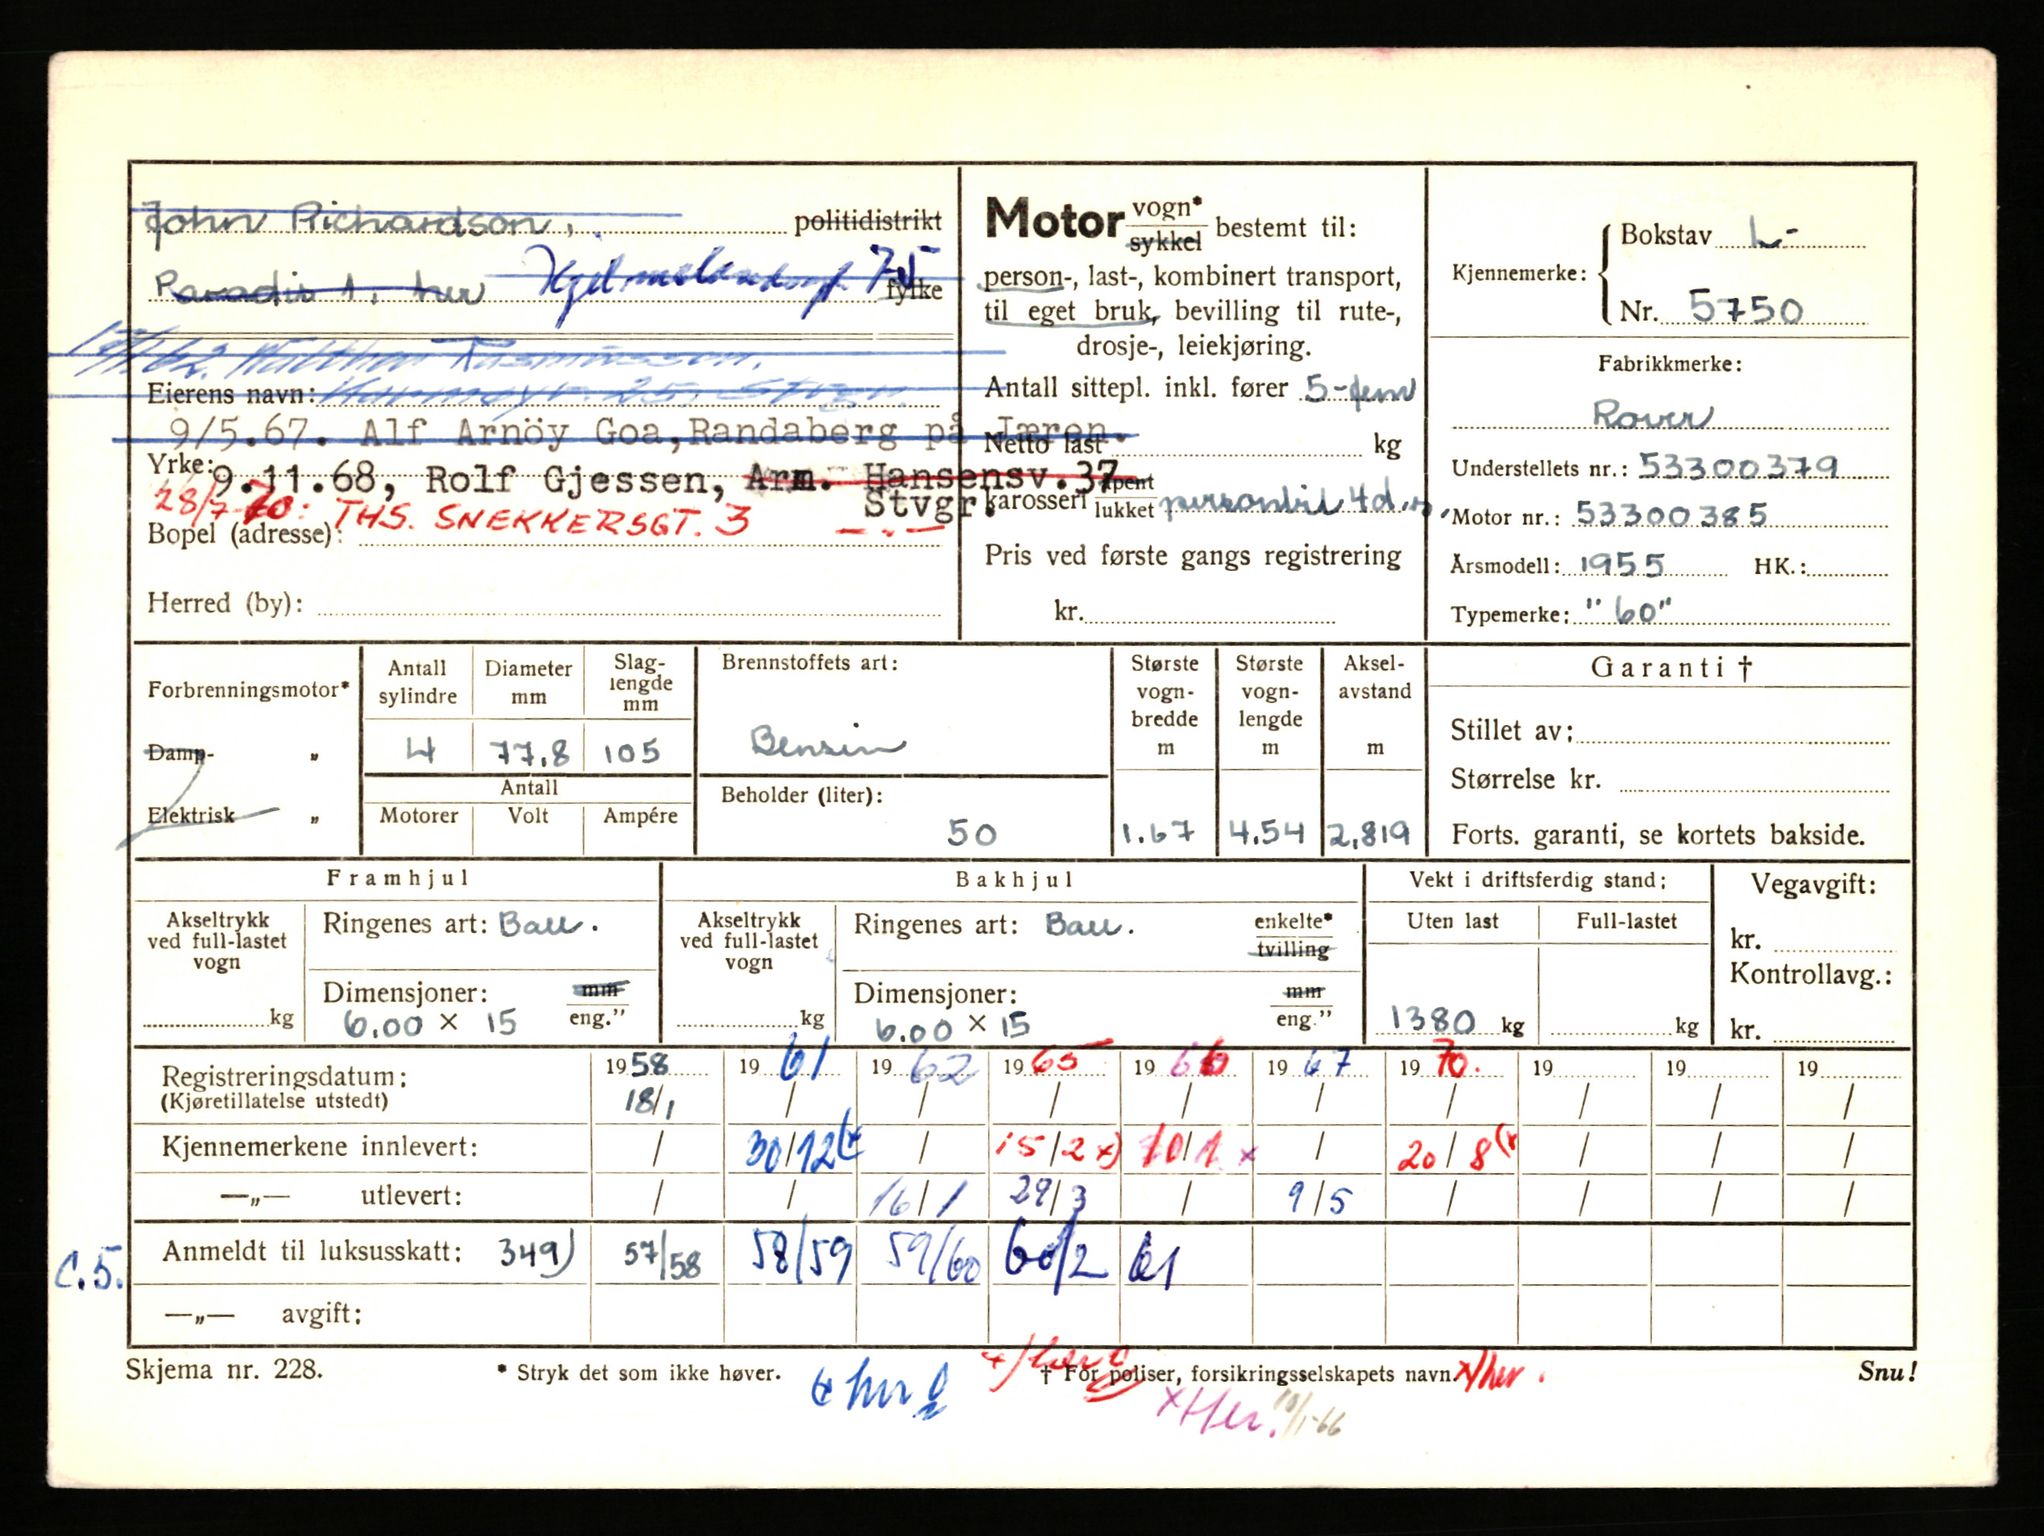 John Richardson, politidistrikt
Paradis 1, her 75 fylke
Rasmussen.
Eierens navn: Karmøyg. 25, Stvgr.
9/5.67. Alf Arnöy Goa, Randaberg på Jæren.
Yrke: 9.11.68, Rolf Gjessen, Arm. Hansensv. 37
Stvgr.
28/7-70: THS. SNEKKERSGT. 3 — . —
Bopel (adresse):
Herred (by):
Motor vogn* / sykkel bestemt til:
person-, last-, kombinert transport,
til eget bruk, bevilling til rute-,
drosje-, leiekjøring.
Antall sittepl. inkl. fører 5-fem
Netto last kg
karosseri åpent / lukket personbil 4 d.
Pris ved første gangs registrering
kr.
Kjennemerke: Bokstav L-
Nr. 5750
Fabrikkmerke:
Rover
Understellets nr.: 53300379
Motor nr.: 53300385
Årsmodell: 1955 HK.:
Typemerke: "60"
Forbrenningsmotor*
Damp- „
Elektrisk „
Antall sylindre 4
Diameter mm 77,8
Slaglengde mm 105
Antall
Motorer Volt Ampére
Brennstoffets art:
Bensin
Beholder (liter):
50
Største vognbredde m 1.67
Største vognlengde m 4.54
Akselavstand m 2,819
Garanti †
Stillet av:
Størrelse kr.
Forts. garanti, se kortets bakside.
Framhjul
Akseltrykk ved full-lastet vogn kg
Ringenes art: Ball.
Dimensjoner: mm / eng."
6.00 × 15
Bakhjul
Akseltrykk ved full-lastet vogn kg
Ringenes art: Ball. enkelte* / tvilling
Dimensjoner: mm / eng."
6.00 × 15
Vekt i driftsferdig stand:
Uten last Full-lastet
1380 kg kg
Vegavgift:
kr.
Kontrollavg.:
kr.
Registreringsdatum: 1958 1961 1962 1965 1966 1967 1970. 19 19 19
(Kjøretillatelse utstedt) 18/1 / / / / / / / / /
Kjennemerkene innlevert: / 30/12 (x / 15/2 x) 10/1 x / 20/8 (x / / /
—„— utlevert: / / 16/1 29/3 / 9/5 / / / /
C.5. Anmeldt til luksusskatt: 349) 57/58 58/59 59/60 60/2 61
—„— avgift:
Skjema nr. 228. * Stryk det som ikke høver. † For poliser, forsikringsselskapets navn. Snu!
(x her x) her x) her.
x Her. 10/1-66